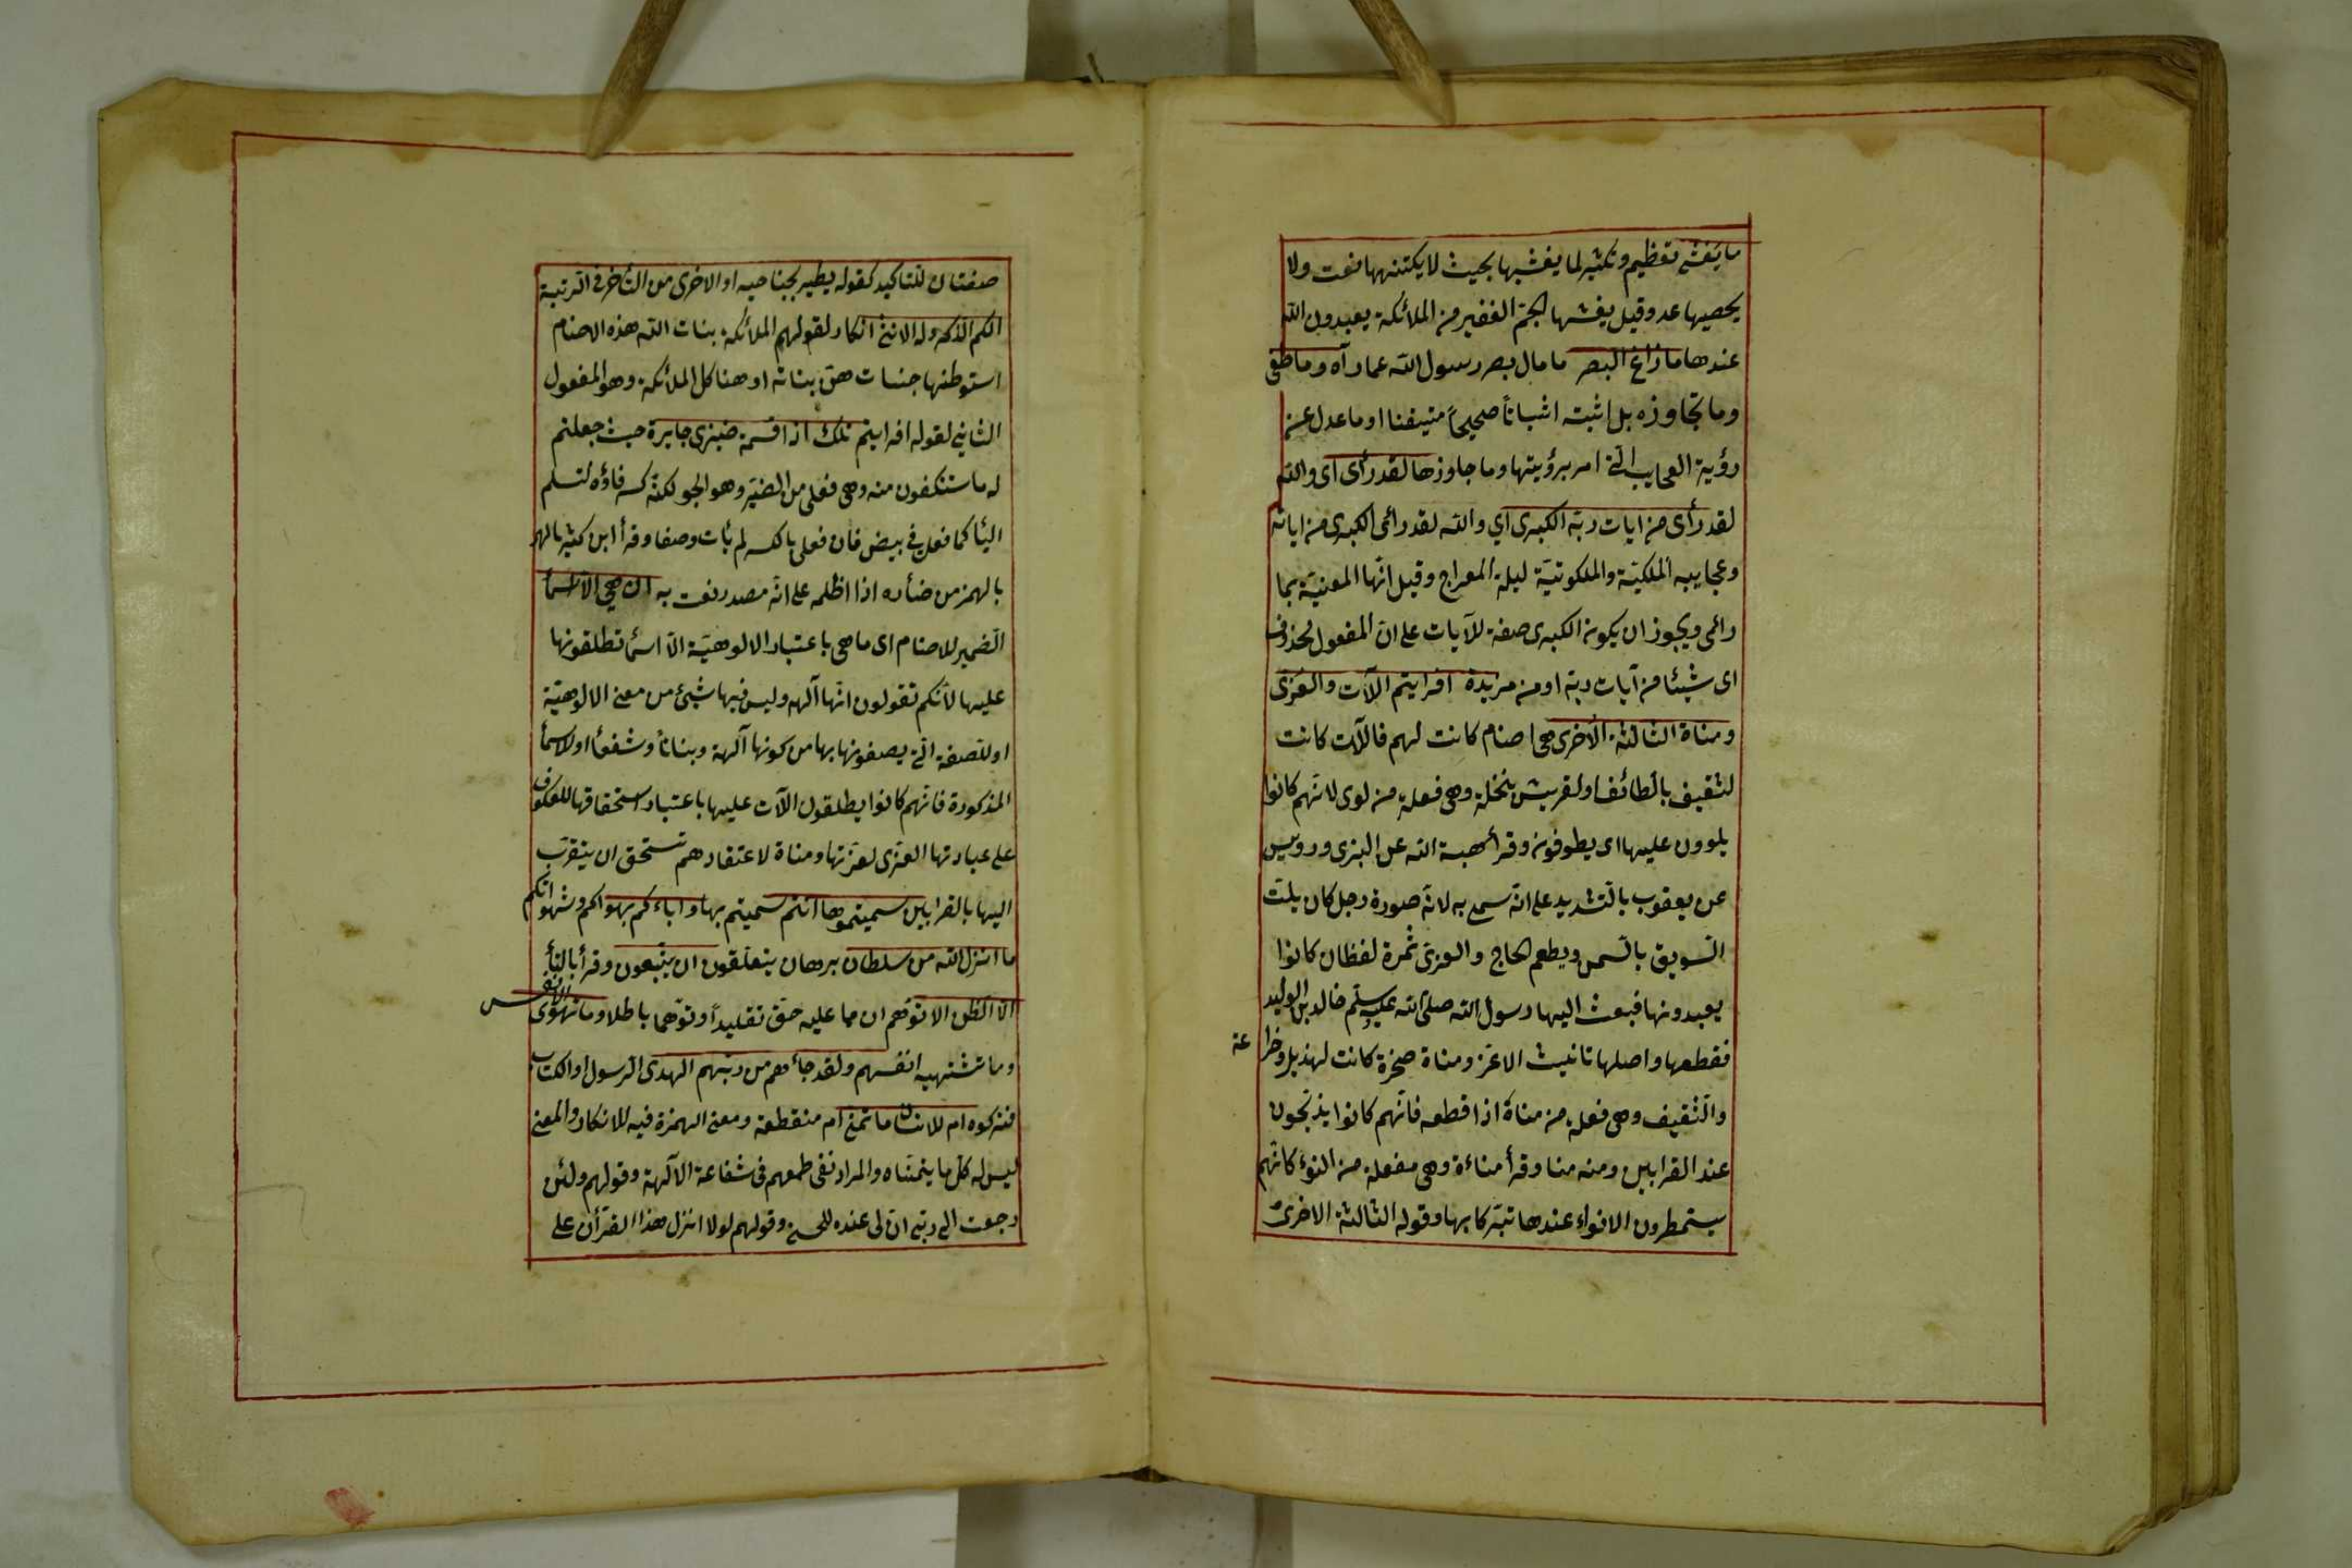 ما يغشى تعظيم وتكثير لما يغشيها بحيث لا يكتنهها نعت ولا
يحصيها عد وقيل يغشها الجم الغفير من الملائكة يعبدون الله
عندها ما زاغ البصر ما مال بصر رسول الله عما رآه وما طغى
وما تجاوزه بل اثبته اثباتاً صحيحاً متيقنا او ما عدل عن
رؤية العجايب التى امر برؤيتها وما جاوزها لقد رأى اى والله
لقد رأى من ايات ربه الكبرى اي والله لقد رائى الكبرى من اياته
وعجايبه الملكيّة والملكوتيّة ليلة المعراج وقيل انّها المعنيّة بما
رائى ويجوز ان يكون الكبرى صفة للآيات على انّ المفعول محذوف
اى شيئا من آيات ربه او من مزيدة افرايتم اللّات والعزى
ومناة الثالثة الأخرى هى اصنام كانت لهم فاللّات كانت
لثقيف بالطائف او لقريش بنخلة وهى فعلة من لوى لانهم كانوا
يلوون عليها اى يطوفون وقرأ هبة الله عن البزى ورويس
عن يعقوب بالتشديد على انّه سمى به لانّه صورة رجل كان يلتّ
السّويق بالسّمن ويطعم الحاج والعزى ثمرة لغطان كانوا
يعبدونها فبعث اليها رسول الله صلى الله عليه وسلّم خالد بن الوليد
فقطعها واصلها تانيث الاعز ومناة صخرة كانت لهذيل وخزا
عة
والثقيف وهى فعلة من مناة اذا قطعه فانّهم كانوا يذبحون
عند القرابين ومنه منا وقرأ مناءة وهى مفعلة من النوء كانّهم
يستمطرون الانواء عندها تبرّكا بها وقوله الثالثة الاخرى
صفتان للتاكيد كقوله يطير بجناحيه او الاخرى من التأخر فى الرتبة
الكم الذكر وله الانثى انكار لقولهم الملائكة بنات الله هذه الاصنام
استوطنها جنيات هن بناته او هنا كل الملائكة وهو المفعول
الثاني لقوله افرايتم تلك اذا قسمة ضيزى جايرة حيث جعلتم
له ما ستنكفون منه وهى فعلى من الضيز وهو الجو لكنّه كسر فاؤه لتسلم
اليأ كما فعل فى بيض فان فعلى بالكسر لم يأت وصفا وقرأ ابن كثير بالهمز
بالهمز من ضأره اذا اظلمه على انّه مصدر نعت به ان هي الّا اسمأ
الضمير للاصنام اى ما هى باعتبار الالوهيّة الّا اسمأ تطلقونها
عليها لأنّكم تقولون انّها آلهه وليس فيها شيئ من معنى الالوهيّة
او للصفة الّتى يصفونها بها من كونها آلهة وبناتاً وشفعأ او للاسمأ
المذكورة فانّهم كانوا يطلقون اللّات عليها باعتبار استحقاقها للعكوف
على عبادتها العزى لعزّتها ومناة لاعتقادهم تستحق ان يتقرّب
اليها بالقرابين سميتموها انتم سميتم بها واباءكم بهواكم وشهواتكم
ما انزل الله من سلطان برهان يتعلّقون ان يتّبعون وقرأ بالتأ
الّا الظن الا توهم ان مما عليه حقّ تقليداً وتوّهما باطلا وما تهوى الانفس
وما تشتهيه انفسهم ولقد جاءهم من ربهم الهدى الرسول او الكتاب
فتركوه ام للانسان ما تمنى ام منقطعة ومعنى الهمزة فيه للانكار والمعنى
ليس له كلّ ما يتمنّاه والمراد نفى طمعهم فى شفاعة الآلهة وقولهم ولئن
رجعت الى ربى انّ لى عنده للحسنى وقولهم لولا انزل هذا القرأن على